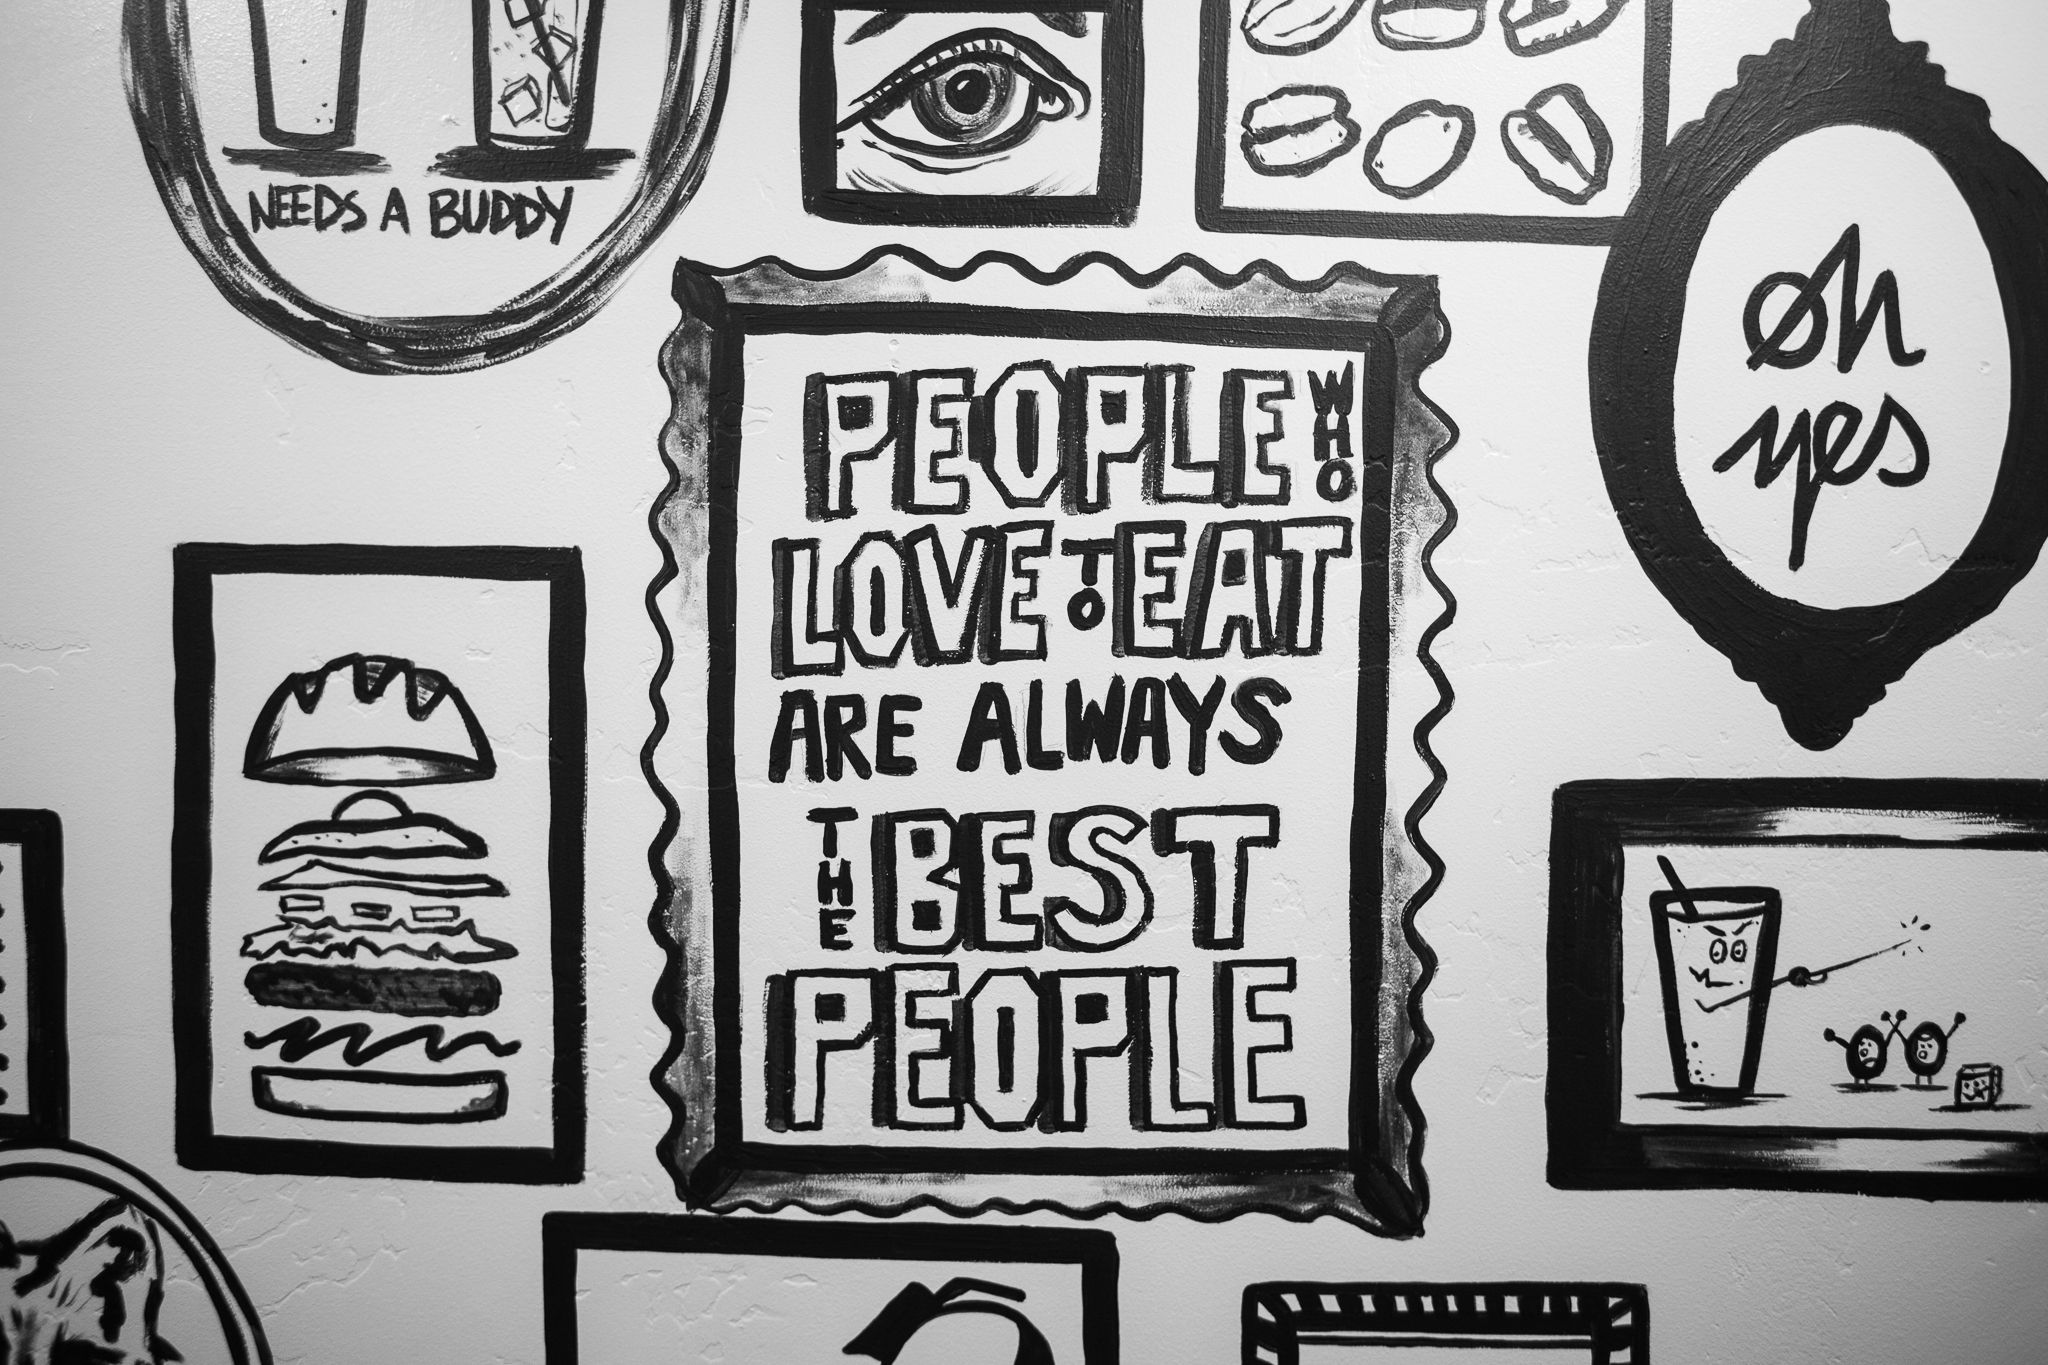 NEEDS A BUDDY
PEOPLE WHO
LOVE TO EAT
ARE ALWAYS
THE BEST
PEOPLE
oh
yes